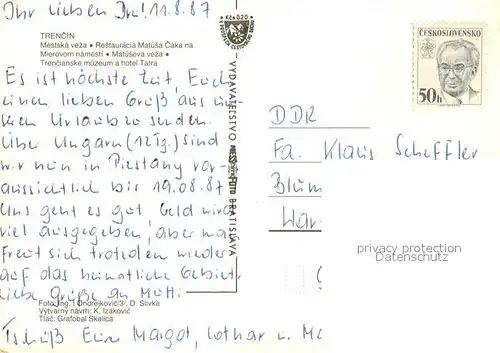 Ihr lieben Drei! 11.8.87
TRENČÍN
Mestská veža • Reštaurácia Matúša Čáka na
Mierovom námestí • Matúšova veža •
Trenčianske múzeum a hotel Tatra
Es ist höchste Zeit, Euch
einen lieben Gruß aus
Urlaub zu senden.
Über Ungarn (12 Tg.) sind
wir nun in Piestany vor-
aussichtlich bis 19.08.87
Uns geht es gut, Geld wird
viel ausgegeben, aber man
freut sich trotzdem wieder
auf das heimatliche Gebiet.
Liebe Grüße an Mutti.
Foto: Ing. I. Ondrejkovič/3/, D. Slivka
Výtvarný návrh: K. Izakovič
Tlač: Grafobal Skalica
Tschüß Eure Margot, Lothar u.
Kčs 0,20
VYDAVATEĽSTVO BRATISLAVA
ČESKOSLOVENSKO
50h
DDR
Fa. Klaus Scheffler
Blum
Har
privacy protection
Datenschutz